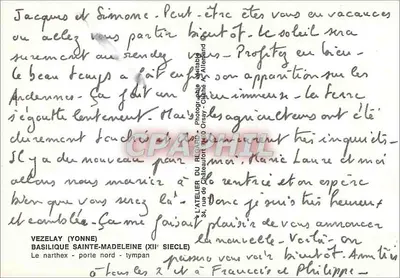 Jacques et Simone. Peut-être êtes vous en vacances
ou allez vous partir bientôt. Le soleil sera
surement au rendez vous. Profitez en bien.
le beau temps a fait enfin son apparition sur les
Ardennes. Ça fait un bien immense. la terre
s'égoutte lentement. Mais les agriculteurs ont été
durement touchés et demeurent très inquiets.
Il y a du nouveau pour moi. Marie Laure et moi
allons nous marier à la rentrée et on espère
bien que vous serez là. Donc je suis très heureux
et comblé. Ça me faisait plaisir de vous annoncer
la nouvelle. Voilà. on
pourra vous voir bientôt. Amitiés
à tous les 2 et à Francis et Philippe.
L'ATELIER DU
34, rue de
VEZELAY (YONNE)
BASILIQUE SAINTE-MADELEINE (XIIe SIECLE)
Le narthex - porte nord - tympan
CPAPHIL